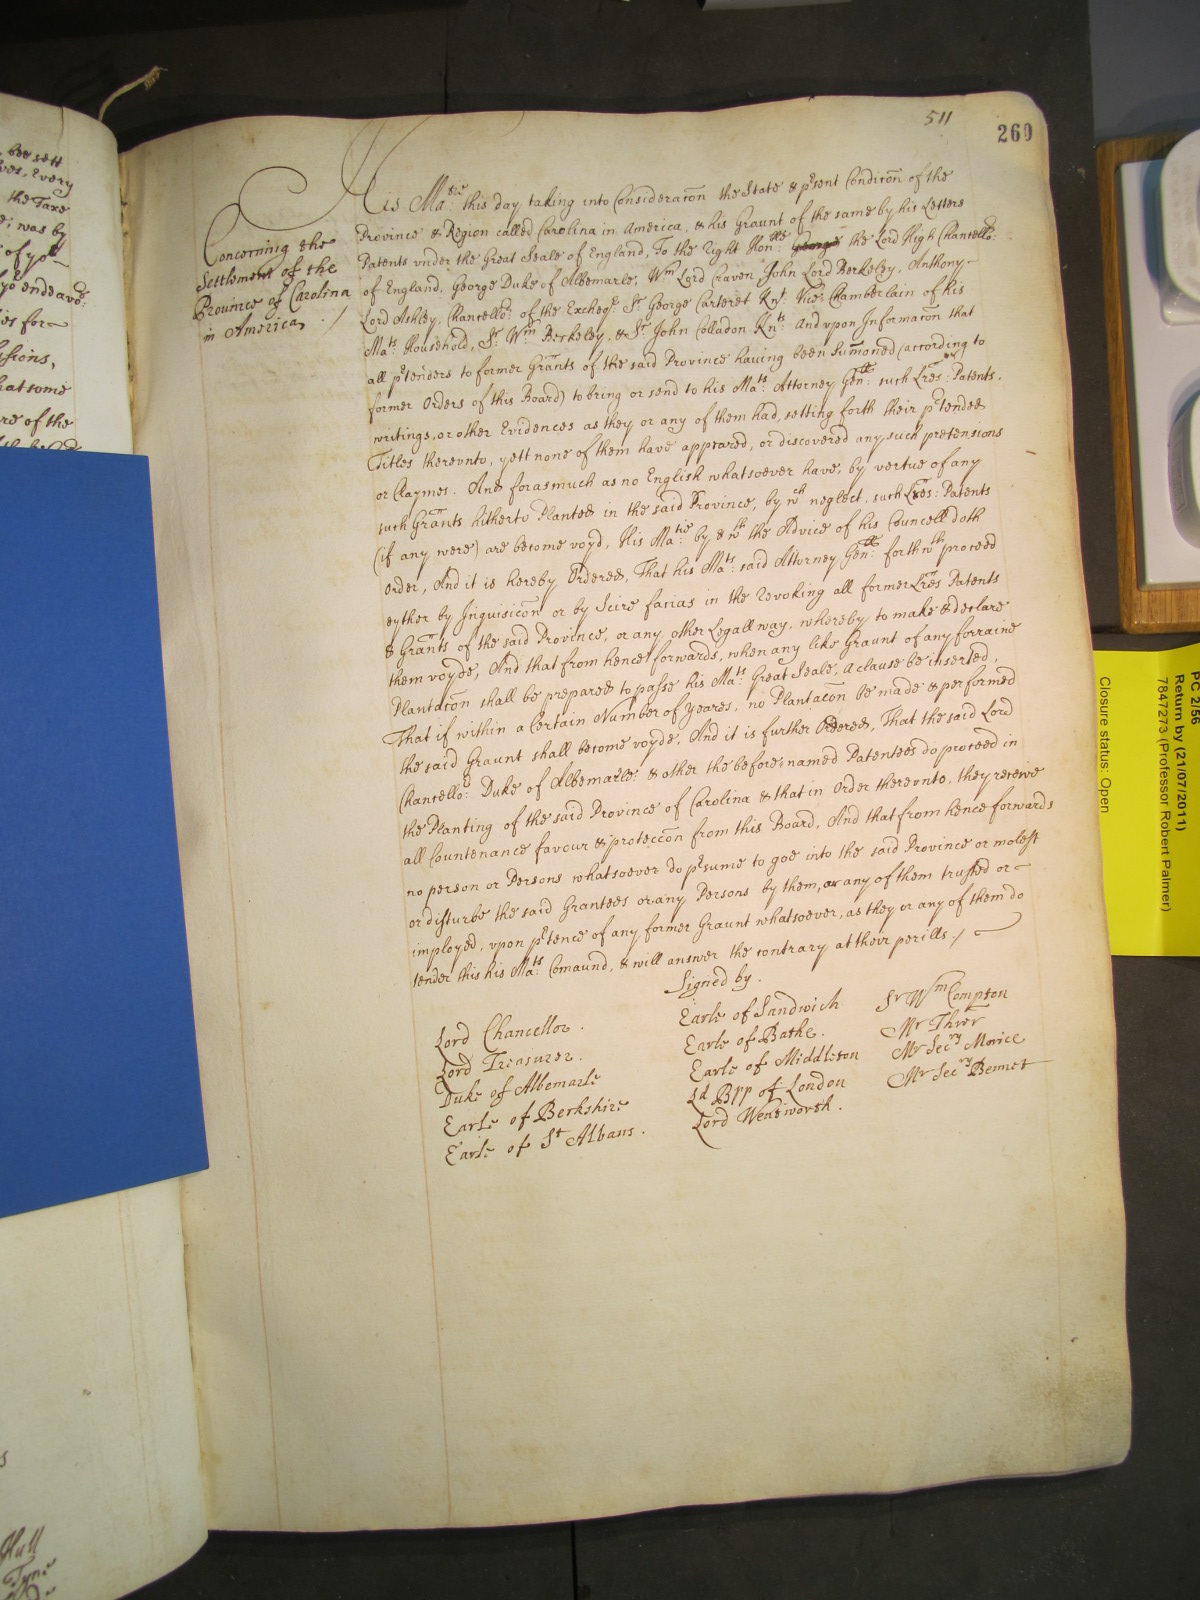 511
269
Concerning the
Settlement of the
Province of Carolina
in America. /
His Ma:tie this day taking into Consideracõn the State & p'sent Condicõn of the
Province & Region called Carolina in America, & his Graunt of the same by his Letters
Patents vnder the Great Seale of England, To the Right Hon:ble George the Lord High Chancello:r
of England, George Duke of Albemarle, W:m Lord Craven, John Lord Berkeley, Anthony
Lord Ashley, Chancello:r of the Excheq:r S:r George Carteret Kn:t Vice Chamberlain of his
Ma:ts Household, S:r W:m Berkeley, & S:r John Colladon Kn:ts And vpon Informacõn that
all p'tenders to former Grants of the said Province having been Sumoned (according to
former Orders of this Board) to bring or send to his Ma:ts Attorney Gen:ll such Lres: Patents,
writings, or other Evidences as they or any of them had, setting forth their p'tended
Titles therevnto, yett none of them have appeared, or discovered any such pretensions
or Claymes. And forasmuch as no English whatsoever have, by vertue of any
such Grants hitherto Planted in the said Province, by w:ch neglect, such Lres: Patents
(if any were) are become voyd, His Ma:tie by & w:th the Advice of his Councell doth
Order, And it is hereby Ordered, That his Ma:ts said Attorney Gen:ll forthw:th proceed
eyther by Inquisicõn or by Scire facias in the Revoking all former Lres Patents
& Grants of the said Province, or any other Legall way, whereby to make & declare
them voyde, And that from hence forwards, when any like Graunt of any forraine
Plantacõn shall be prepared to passe his Ma:ts Great Seale, a clause be inserted,
That if within a Certain Number of yeares, no Plantacõn be made & performed
the said Graunt shall become voyde. And it is further Ordered, That the said Lord
Chancello:r Duke of Albemarle & other the before named Patentees do proceed in
the Planting of the said Province of Carolina & that in Order therevnto, they receive
all Countenance favour & proteccõn from this Board, And that from hence forwards
no person or Persons whatsoever do p'sume to goe into the said Province or molest
or disturbe the said Grantees or any Persons by them, or any of them trusted or
imployed, vpon p'tence of any former Graunt whatsoever, as they or any of them do
tender this his Ma:ts Comaund, & will answer the contrary at their perills. /
Signed by.
Lord Chancellor.
Lord Treasurer.
Duke of Albemarle
Earle of Berkshire
Earle of St Albans.
Earle of Sandwich
Earle of Bathe.
Earle of Middleton
Ld Bpp of London
Lord Wentworth.
Sr Wm Compton
Mr Thrēr
Mr Secry Morice
Mr Secry Bennet
bee sett
Every
the Taxe
was by
of yor
yor endeavo:r
ies for
hat some
re of the
Hull
PC 2/56
Return by (21/07/2011)
7847273 (Professor Robert Palmer)
Closure status: Open